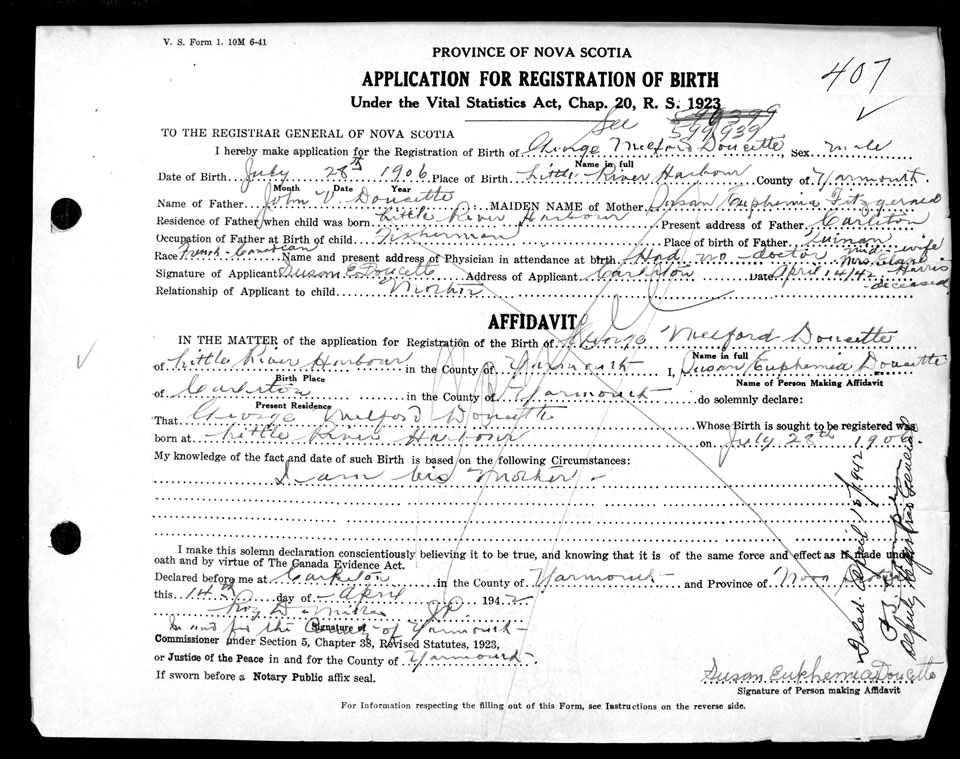 V. S. Form 1. 10M 6-41
PROVINCE OF NOVA SCOTIA
407
APPLICATION FOR REGISTRATION OF BIRTH
Under the Vital Statistics Act, Chap. 20, R. S. 1923
See 599939
TO THE REGISTRAR GENERAL OF NOVA SCOTIA
I hereby make application for the Registration of Birth of George Melford Doucette, Sex male
Name in full
Date of Birth July 28th 1906 Place of Birth Little River Harbour County of Yarmouth.
Month Date Year
Name of Father John V Doucette MAIDEN NAME of Mother Susan Euphemia Fitzgerald
Residence of Father when child was born Little River Harbour Present address of Father Carleton
Occupation of Father at Birth of child Fisherman Place of birth of Father Quinan
Race French-Canadian Name and present address of Physician in attendance at birth Had no doctor mid-wife Mrs. Harris deceased
Signature of Applicant Susan E Doucette Address of Applicant Carleton Date April 14/42
Relationship of Applicant to child Mother
AFFIDAVIT
IN THE MATTER of the application for Registration of the Birth of George Melford Doucette
Name in full
of Little River Harbour in the County of Yarmouth I, Susan Euphemia Doucette
Birth Place Name of Person Making Affidavit
of Carleton in the County of Yarmouth do solemnly declare:
Present Residence
That George Melford Doucette Whose Birth is sought to be registered was
born at Little River Harbour on July 28th 1906
My knowledge of the fact and date of such Birth is based on the following Circumstances:
I am his Mother
I make this solemn declaration conscientiously believing it to be true, and knowing that it is of the same force and effect as if made under
oath and by virtue of The Canada Evidence Act.
Declared before me at Carleton in the County of Yarmouth and Province of Nova Scotia
this 14th day of April 1942
Roy D J.P.
Signature of
In and for the County of Yarmouth
Commissioner under Section 5, Chapter 38, Revised Statutes, 1923,
or Justice of the Peace in and for the County of Yarmouth.
If sworn before a Notary Public affix seal.
Susan Euphemia Doucette
Signature of Person making Affidavit
For Information respecting the filling out of this Form, see Instructions on the reverse side.
Filed: April 15/1942
Deputy Registrar General